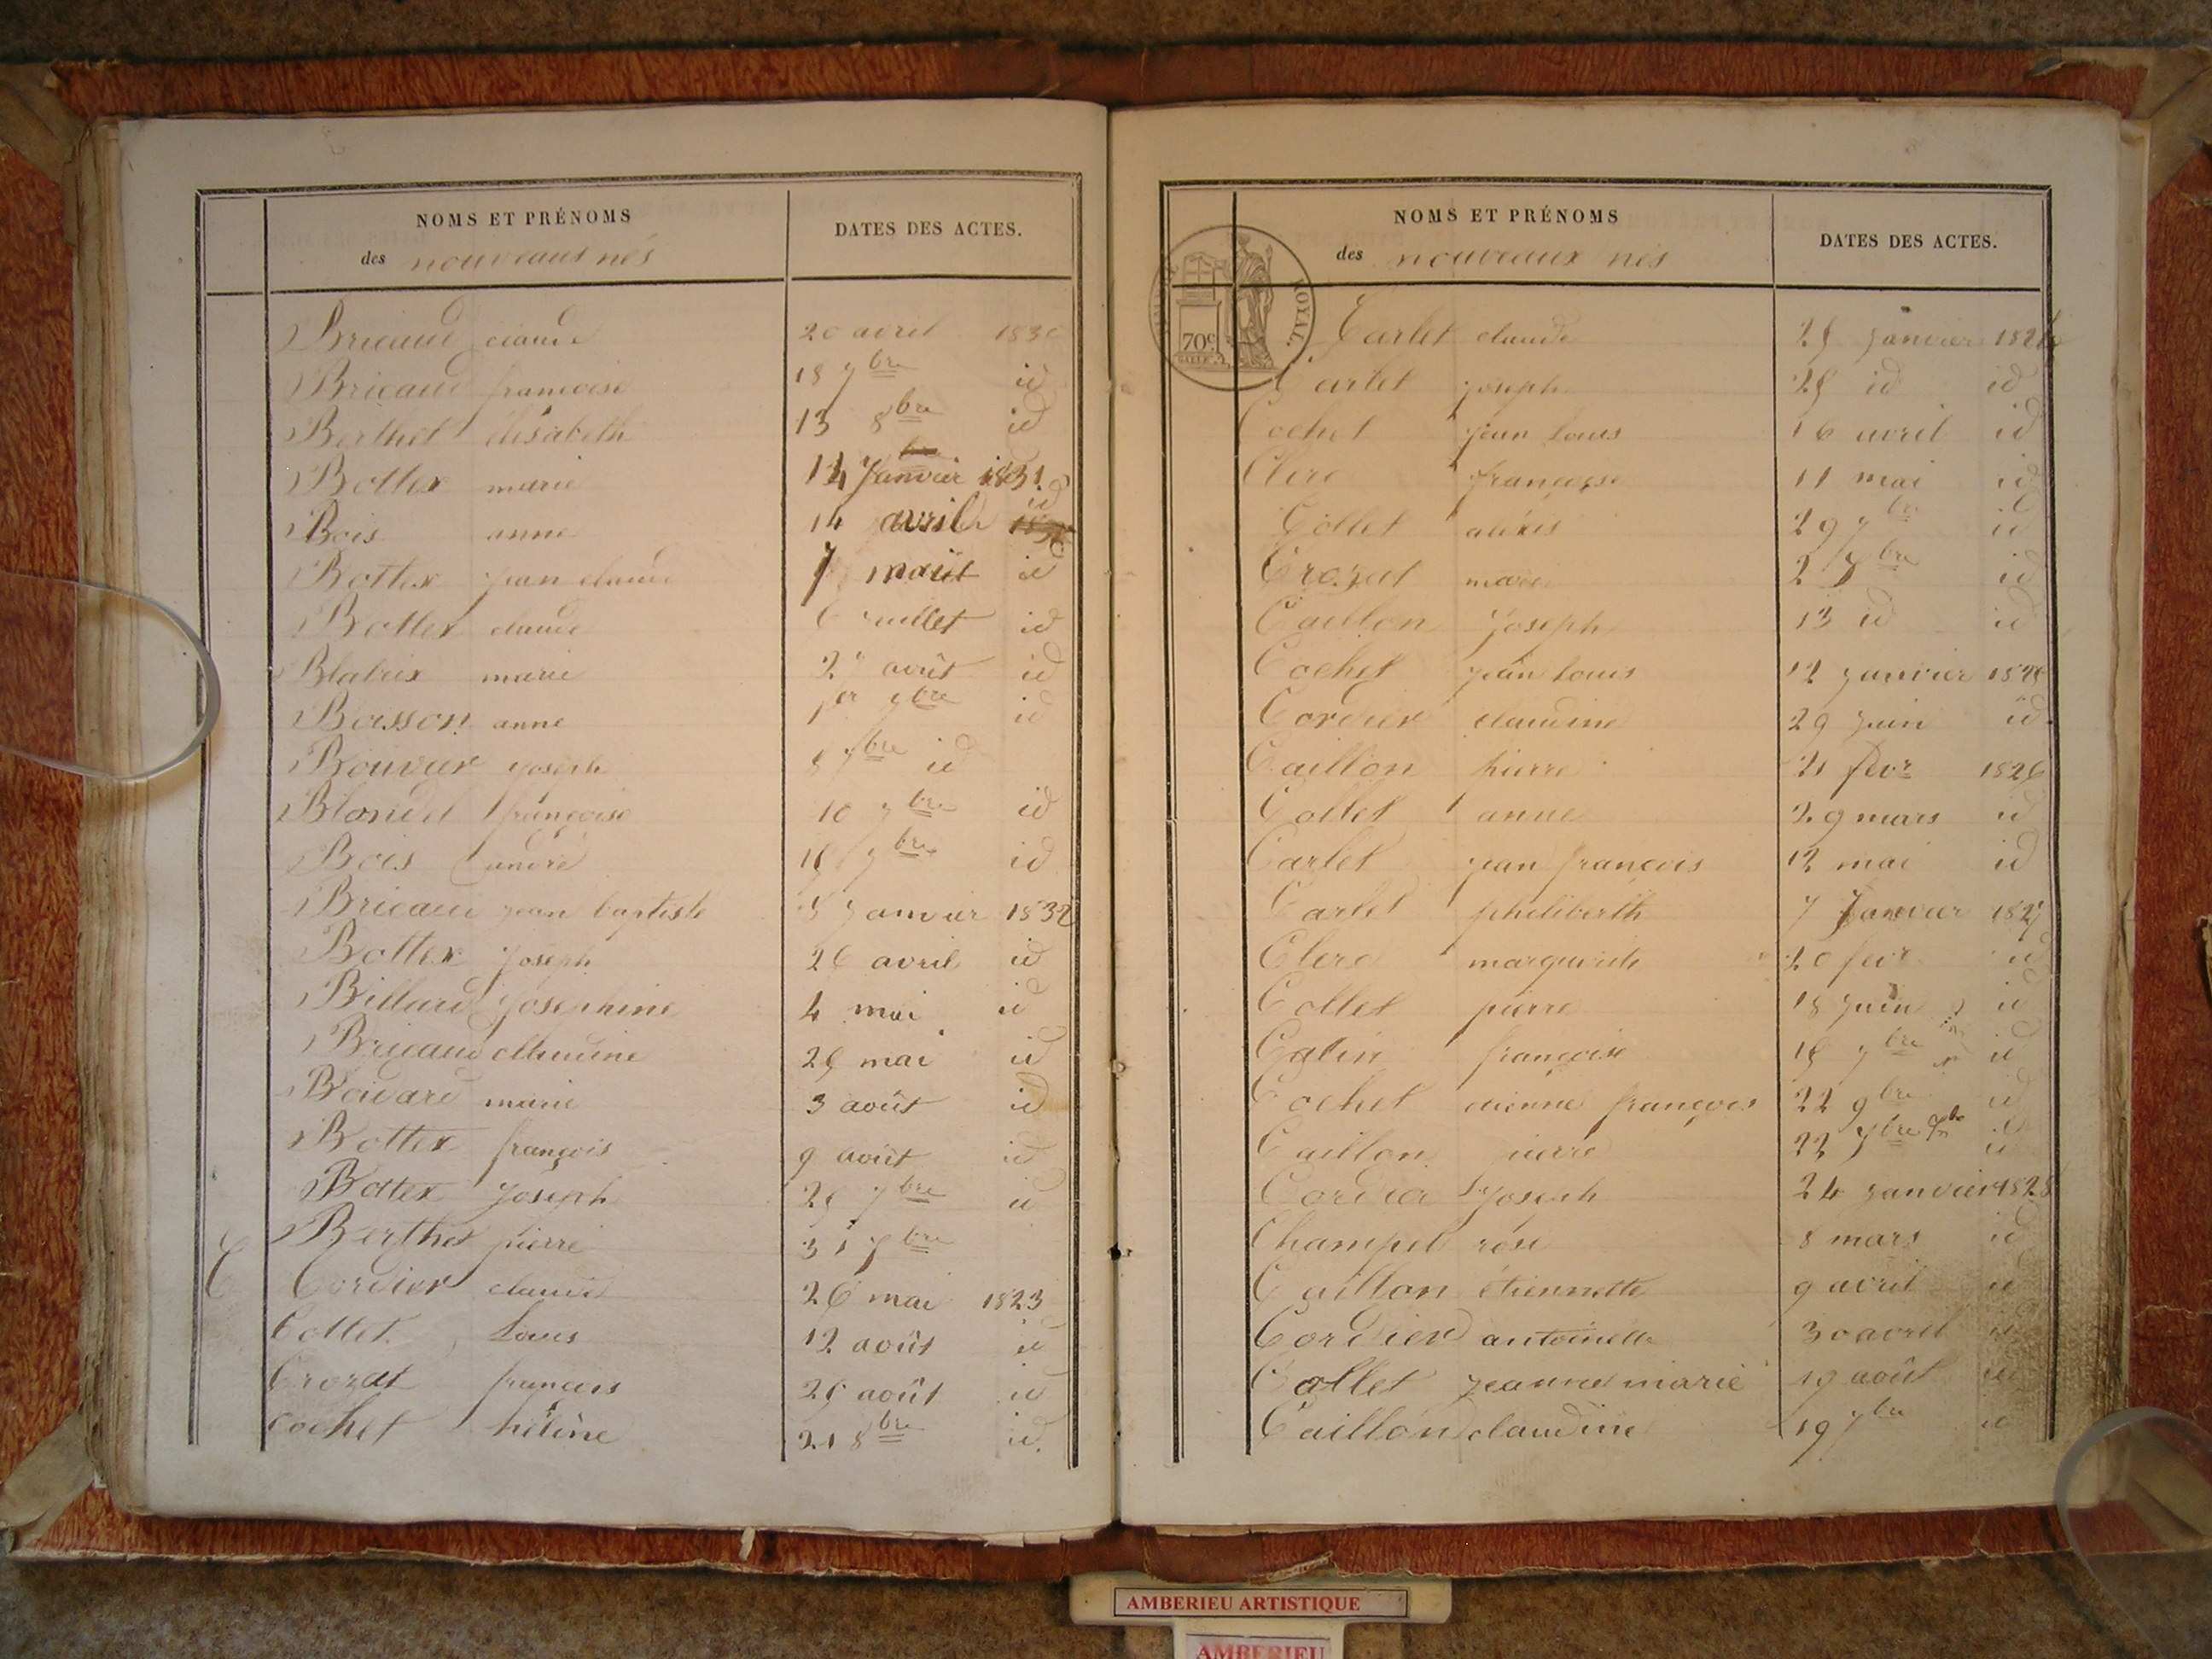 NOMS ET PRÉNOMS
des nouveaux nés
DATES DES ACTES.
Bricaud claude 20 avril 1830
Bricaud francoise 18 7bre id
Berthet élisabeth 13 8bre id
Bottex marie 14 Janvier 1831
Bois anne 14 avril id
Bottex jean claude 7 id
Bottex claude 6 juillet id
Blatrix marie 27 août id
Boisson anne 1er 9bre id
Bouvier joseph 8 7bre id
Blondel françoise 10 7bre id
Bois andré 18 7bre id
Bricaud jean baptiste 5 janvier 1832
Bottex joseph 26 avril id
Billard josephine 4 mai id
Bricaud claudine 28 mai id
marie 3 août id
Bottex françois 9 août id
Bottex joseph 28 7bre id
Berthet pierre 31 7bre
C Cordier claude 26 mai 1823
Collet Louis 12 août id
Crozat françois 26 août id
Cochet hélène 21 8bre id.
NOMS ET PRÉNOMS
des nouveaux nés
DATES DES ACTES.
ROYAL.
70c
Carlet claude 28 janvier
Carlet joseph 28 id id
Cochet jean Louis 16 avril id
Clerc françoise 11 mai id
Collet aléxis 29 7bre id
Crozat marie 2 bre id
Caillon Joseph 13 id id
Cochet jean Louis 12 janvier
Cordier claudine 29 juin id
Caillon pierre 21 fevr 1826
Collet anne 29 mars id
Carlet jean françois 12 mai id
Carlet philiberth 7 Janvier 1827
Clerc marguerite 20 fevr id
Collet pierre 18 juin id
Catin françoise 18 7bre id
Cochet etienne françois 22 9bre id
Caillon pierre 22 id
Cordier Joseph 24 janvier 1828
Champel rose 8 mars id
Caillon étiennette 9 avril id
Cordier antoinette 30 avril id
Collet jeanne marie 19 août id
Caillon claudine 19 7bre id
AMBERIEU ARTISTIQUE
AMBERIEU